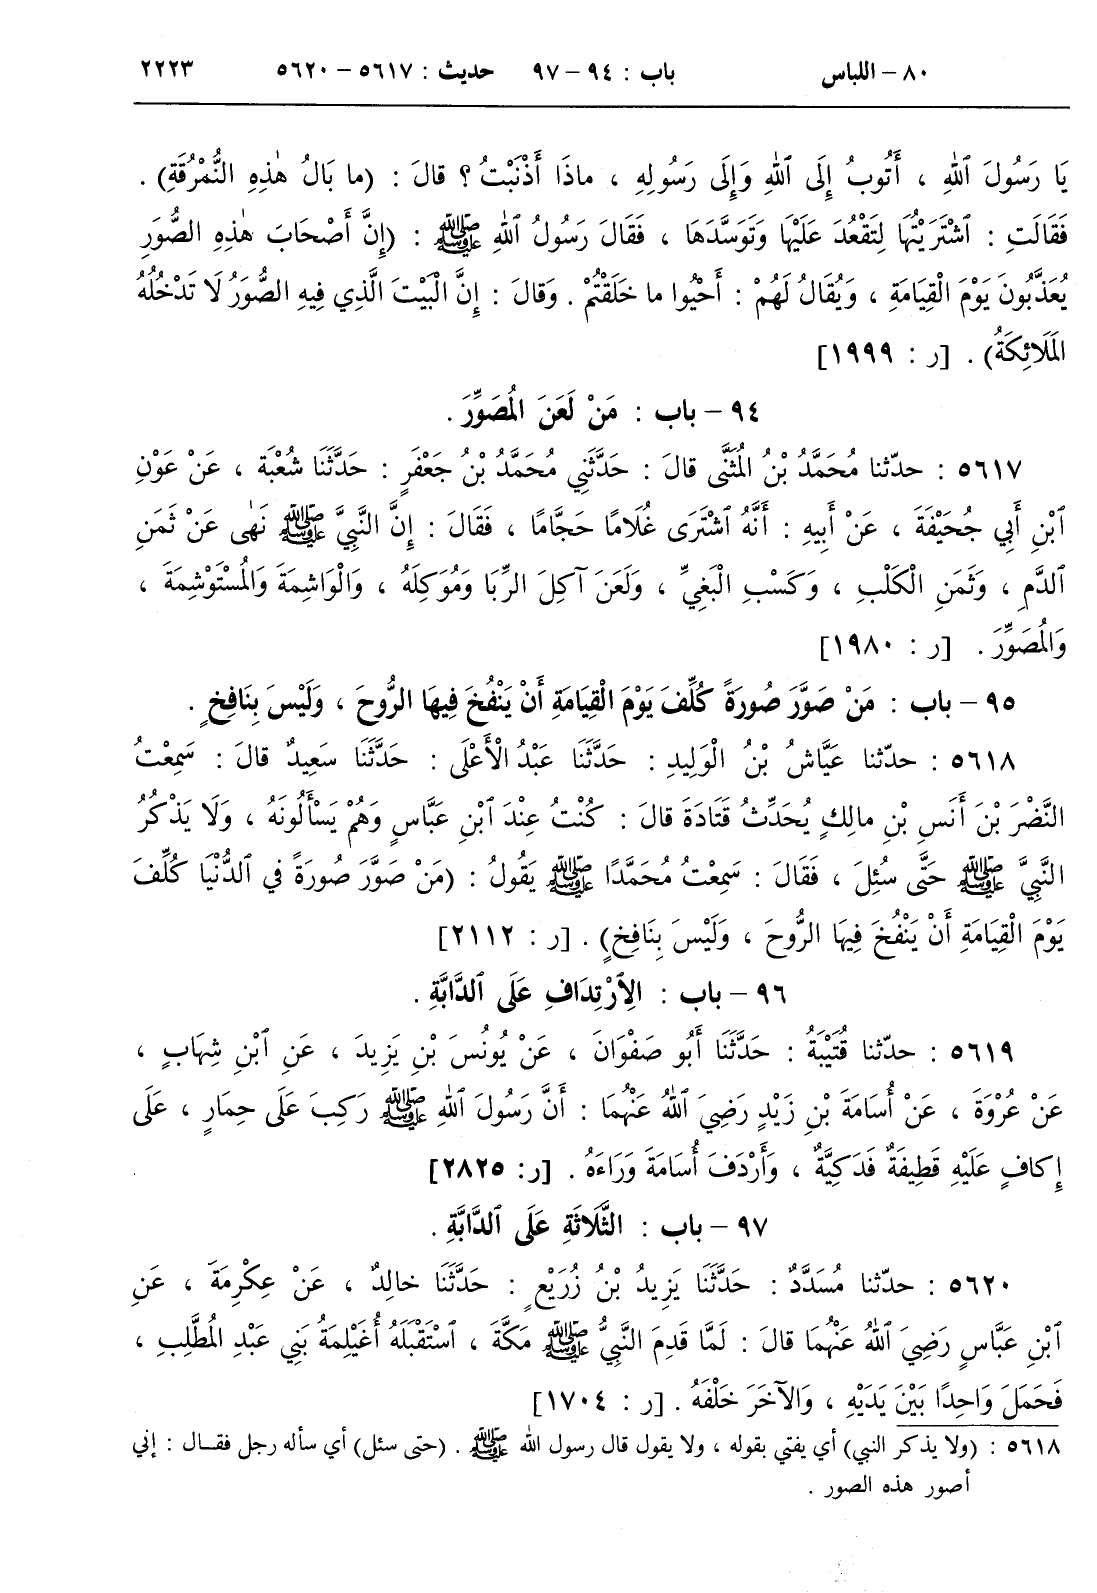 ٨٠ – اللباس باب : ٩٤ – ٩٧ حديث : ٥٦١٧ – ٥٦٢٠ ٢٢٢٣
يَا رَسُولَ ٱللهِ ، أَتُوبُ إِلَى ٱللهِ وَإِلَى رَسُولِهِ ، ماذَا أَذْنَبْتُ ؟ قالَ : (ما بَالُ هٰذِهِ النُّمْرُقَةِ) .
فَقَالَتِ : ٱشْتَرَيْتُهَا لِتَقْعُدَ عَلَيْهَا وَتَوَسَّدَهَا ، فَقَالَ رَسُولُ ٱللهِ ﷺ : (إِنَّ أَصْحَابَ هٰذِهِ الصُّوَرِ
يُعَذَّبُونَ يَوْمَ الْقِيَامَةِ ، وَيُقَالُ لَهُمْ : أَحْيُوا ما خَلَقْتُمْ . وَقالَ : إِنَّ الْبَيْتَ الَّذِي فِيهِ الصُّوَرُ لَا تَدْخُلُهُ
المَلَائِكَةُ) . [ر : ١٩٩٩]
٩٤ – باب : مَنْ لَعَنَ الْمُصَوِّرَ .
٥٦١٧ : حدّثنا مُحَمَّدُ بْنُ الْمُثَنَّى قالَ : حَدَّثَنِي مُحَمَّدُ بْنُ جَعْفَرٍ : حَدَّثَنَا شُعْبَةُ ، عَنْ عَوْنِ
ٱبْنِ أَبِي جُحَيْفَةَ ، عَنْ أَبِيهِ : أَنَّهُ ٱشْتَرَى غُلَامًا حَجَّامًا ، فَقَالَ : إِنَّ النَّبِيَّ ﷺ نَهٰى عَنْ ثَمَنِ
ٱلدَّمِ ، وَثَمَنِ الْكَلْبِ ، وَكَسْبِ الْبَغِيِّ ، وَلَعَنَ آكِلَ الرِّبَا وَمُوَكِلَهُ ، وَالْوَاشِمَةَ وَالْمُسْتَوْشِمَةَ ،
وَالْمُصَوِّرَ . [ر : ١٩٨٠]
٩٥ – باب : مَنْ صَوَّرَ صُورَةً كُلِّفَ يَوْمَ الْقِيَامَةِ أَنْ يَنْفُخَ فِيهَا الرُّوحَ ، وَلَيْسَ بِنَافِخٍ .
٥٦١٨ : حدّثنا عَيَّاشُ بْنُ الْوَلِيدِ : حَدَّثَنَا عَبْدُ الْأَعْلَى : حَدَّثَنَا سَعِيدٌ قالَ : سَمِعْتُ
النَّضْرَ بْنَ أَنَسِ بْنِ مالِكٍ يُحَدِّثُ قَتَادَةَ قالَ : كُنْتُ عِنْدَ ٱبْنِ عَبَّاسٍ وَهُمْ يَسْأَلُونَهُ ، وَلَا يَذْكُرُ
النَّبِيَّ ﷺ حَتَّى سُئِلَ ، فَقَالَ : سَمِعْتُ مُحَمَّدًا ﷺ يَقُولُ : (مَنْ صَوَّرَ صُورَةً في ٱلدُّنْيَا كُلِّفَ
يَوْمَ الْقِيَامَةِ أَنْ يَنْفُخَ فِيهَا الرُّوحَ ، وَلَيْسَ بِنَافِخٍ) . [ر : ٢١١٢]
٩٦ – باب : الِٱرْتِدَافِ عَلَى ٱلدَّابَّةِ .
٥٦١٩ : حدّثنا قُتَيْبَةُ : حَدَّثَنَا أَبُو صَفْوَانَ ، عَنْ يُونُسَ بْنِ يَزِيدَ ، عَنِ ٱبْنِ شِهَابٍ ،
عَنْ عُرْوَةَ ، عَنْ أُسَامَةَ بْنِ زَيْدٍ رَضِيَ ٱللهُ عَنْهُمَا : أَنَّ رَسُولَ ٱللهِ ﷺ رَكِبَ عَلَى حِمَارٍ ، عَلَى
إِكافٍ عَلَيْهِ قَطِيفَةٌ فَدَكِيَّةٌ ، وَأَرْدَفَ أُسَامَةَ وَرَاءَهُ . [ر: ٢٨٢٥]
٩٧ – باب : الثَّلَاثَةِ عَلَى ٱلدَّابَّةِ .
٥٦٢٠ : حدّثنا مُسَدَّدٌ : حَدَّثَنَا يَزِيدُ بْنُ زُرَيْعٍ : حَدَّثَنَا خالِدٌ ، عَنْ عِكْرِمَةَ ، عَنِ
ٱبْنِ عَبَّاسٍ رَضِيَ ٱللهُ عَنْهُمَا قالَ : لَمَّا قَدِمَ النَّبِيُّ ﷺ مَكَّةَ ، ٱسْتَقْبَلَهُ أُغَيْلِمَةُ بَنِي عَبْدِ الْمُطَّلِبِ ،
فَحَمَلَ وَاحِدًا بَيْنَ يَدَيْهِ ، وَالآخَرَ خَلْفَهُ . [ر : ١٧٠٤]
٥٦١٨ : (ولا يذكر النبي) أي يفتي بقوله ، ولا يقول قال رسول الله ﷺ . (حتى سئل) أي سأله رجل فقال : إني
أصور هذه الصور .